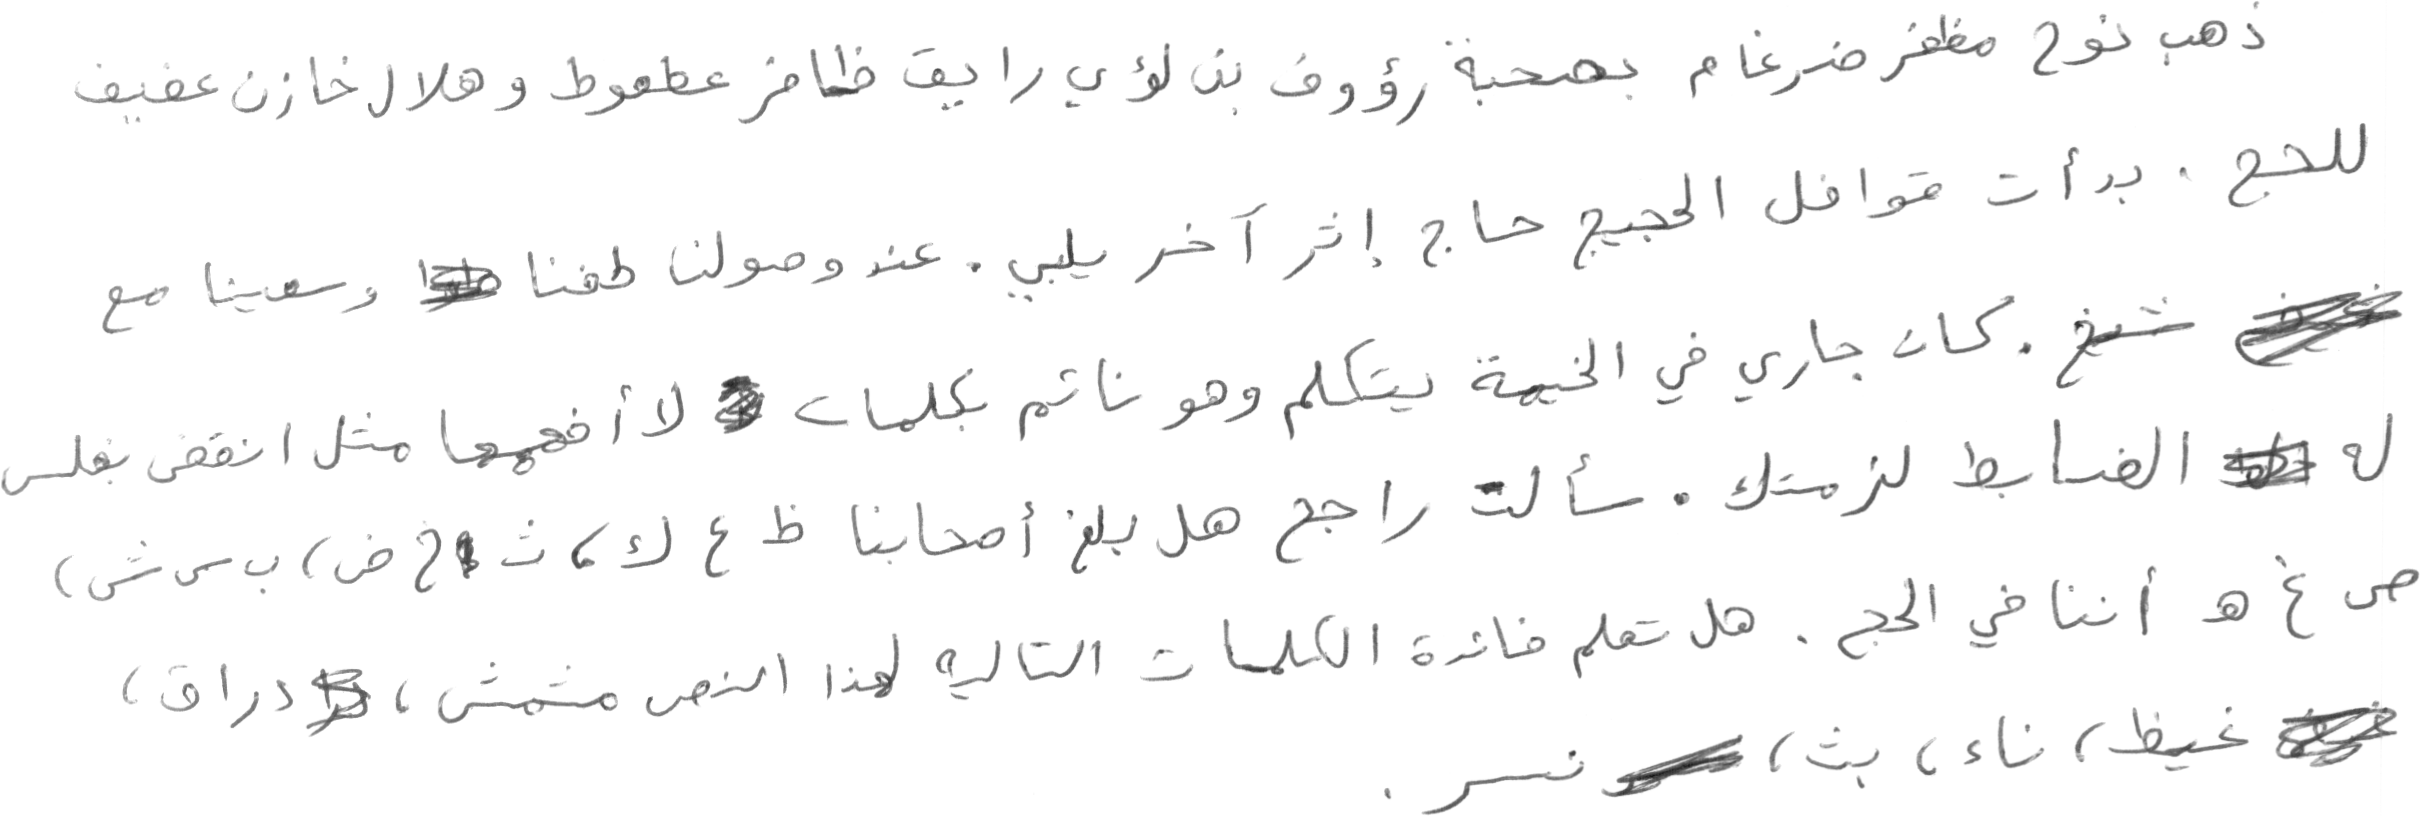 ذهب نوح مظفر ضرغام بصحبة رؤوف بن لؤي رايق ظافر عطعوط وهلال خازن عفيف
للحج . بدأت قوافل الحجيج حاج إثر آخر يلبي . عند وصولنا طفنا وسعينا مع
شيخ . كان جاري في الخيمة يتكلم وهو نائم بكلمات لا أفهمها مثل انقض بغلس
له الضابط لزمتك . سألت راجح هل بلغ أصحابنا ظ ع ك، ث خ ض، ب س ش،
ص غ هـ أننا في الحج . هل تعلم فائدة الكلمات التالية لهذا النص مشمش، دراق،
غيظ، ناء، بث، نسر .